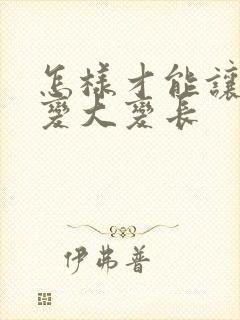 怎樣才能讓
變大變長
伊弗普